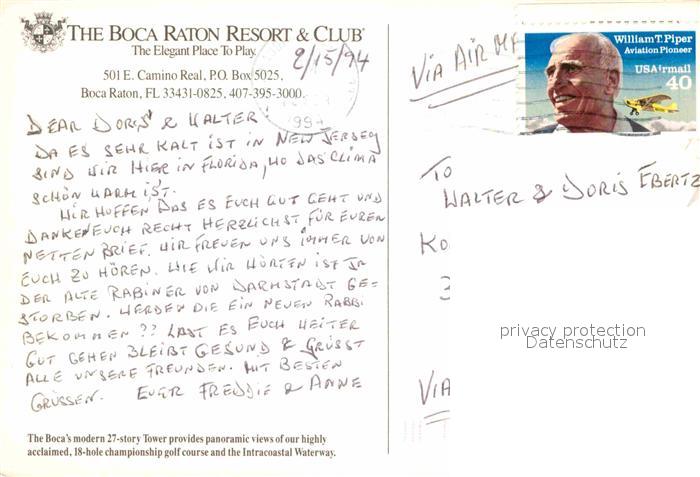 THE BOCA RATON RESORT & CLUB®
The Elegant Place To Play.
501 E. Camino Real, P.O. Box 5025,
Boca Raton, FL 33431-0825, 407-395-3000.
2/15/94
DEAR DORIS & WALTER!
DA ES SEHR KALT IST IN NEW JERSEY
SIND WIR HIER IN FLORIDA, WO DAS CLIMA
SCHÖN WARM IST.
WIR HOFFEN DAS ES EUCH GUT GEHT UND
DANKEN EUCH RECHT HERZLICHST FÜR EUREN
NETTEN BRIEF. WIR FREUEN UNS IMMER VON
EUCH ZU HÖREN. WIE WIR HÖRTEN IST JA
DER ALTE RABINER VON DARMSTADT GE-
STORBEN. WERDEN DIE EIN NEUEN RABBI
BEKOMMEN ?? LAST ES EUCH WEITER
GUT GEHEN BLEIBT GESUND & GRÜSST
ALLE UNSERE FREUNDEN. MIT BESTEN
GRÜSSEN. EUER FREDDIE & ANNE
The Boca's modern 27-story Tower provides panoramic views of our highly
acclaimed, 18-hole championship golf course and the Intracoastal Waterway.
VIA AIR
William T. Piper
Aviation Pioneer
USAirmail
40
TO
WALTER & DORIS EBERTZ
privacy protection
Datenschutz
VIA